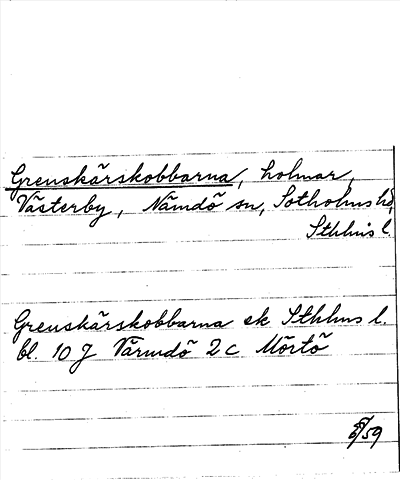 Grenskärskobbarna, holmar,
Västerby, Nämdö sn, Sotholms hd,
Sthlms l.
Grenskärskobbarna ek Sthlms l.
bl. 10 J Värmdö 2c Mörtö
/59